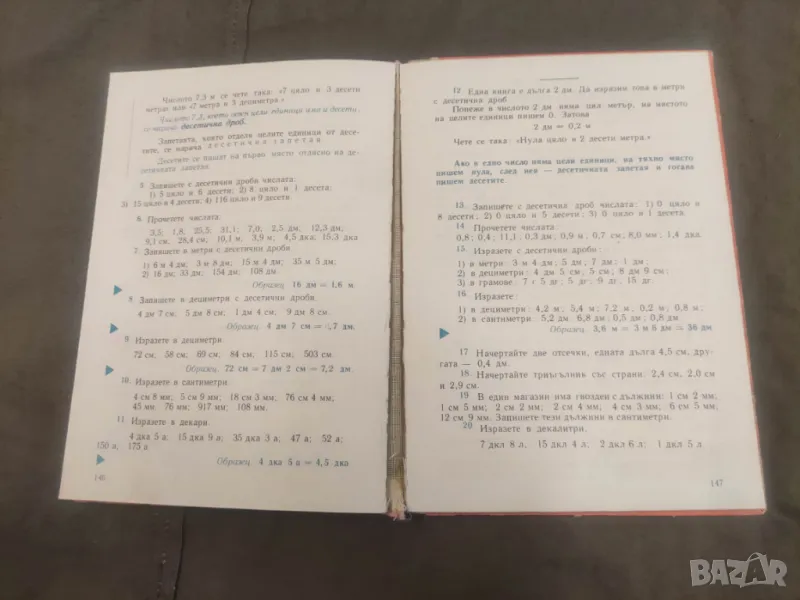 Числото 7,3 м се чете така: «7 цяло и 3 десети
метра» или «7 метра и 3 дециметра.»
Числото 7,3, което освен цели единици има и десети,
се нарича десетична дроб.
Запетаята, която отделя целите единици от десе-
тите, се нарича десетична запетая.
Десетите се пишат на първо място отдясно на де-
сетичната запетая.
5. Запишете с десетични дроби числата:
1) 5 цяло и 6 десети; 2) 8 цяло и 1 десета;
3) 15 цяло и 4 десети; 4) 116 цяло и 9 десети.
6. Прочетете числата:
3,5; 1,8; 25,5; 31,1; 7,0; 2,5 дм; 12,3 дм;
9,1 см; 28,4 см; 10,1 м; 3,9 м; 4,5 дка; 15,3 дка
7. Запишете в метри с десетични дроби:
1) 6 м 4 дм; 3 м 8 дм; 15 м 4 дм; 35 м 5 дм;
2) 16 дм; 33 дм; 154 дм; 108 дм
Образец: 16 дм = 1,6 м.
8. Запишете в дециметри с десетични дроби:
4 дм 7 см; 5 дм 8 см; 1 дм 4 см; 9 дм 8 см.
Образец: 4 дм 7 см = 4,7 дм.
9. Изразете в дециметри:
72 см, 58 см; 69 см; 84 см; 115 см; 503 см.
Образец: 72 см = 7 дм 2 см = 7,2 дм.
10. Изразете в сантиметри:
4 см 8 мм; 5 см 9 мм; 18 см 3 мм; 76 см 4 мм;
45 мм 76 мм; 917 мм; 108 мм.
11. Изразете в декари:
4 дка 5 а; 15 дка 9 а; 35 дка 3 а; 47 а; 52 а;
150 а; 175 а.
Образец: 4 дка 5 а = 4,5 дка
146
12. Една книга е дълга 2 дм. Да изразим това в метри
с десетична дроб.
Понеже в числото 2 дм няма цял метър, на мястото
на целите единици пишем 0. Затова
2 дм = 0,2 м
Чете се така: «Нула цяло и 2 десети метра.»
Ако в едно число няма цели единици, на тяхно място
пишем нула, след нея — десетичната запетая и тогава
пишем десетите.
13. Запишете с десетична дроб числата: 1) 0 цяло и
8 десети; 2) 0 цяло и 5 десети; 3) 0 цяло и 1 десета.
14. Прочетете числата:
0,8; 0,4; 11,1; 0,3 дм; 0,9 м; 0,7 см; 8,0 мм; 1,4 дкл.
15. Изразете с десетични дроби:
1) в метри: 3 м 4 дм; 5 дм; 7 дм; 1 дм;
2) в дециметри: 4 дм 5 см; 5 см; 8 дм 9 см;
3) в грамове: 7 г 5 дг; 9 дг; 15 дг.
16. Изразете:
1) в дециметри: 4,2 м, 5,4 м; 7,2 м, 0,2 м; 0,8 м;
2) в сантиметри: 5,2 дм, 6,8 дм; 0,5 дм, 0,8 дм.
Образец: 3,6 м = 3 м 6 дм = 36 дм
17. Начертайте две отсечки, едната дълга 4,5 см, дру-
гата — 0,4 дм.
18. Начертайте триъгълник със страни: 2,4 см, 2,0 см
и 2,9 см.
19. В един магазин има гвоздеи с дължини: 1 см 2 мм;
1 см 5 мм; 2 см 2 мм; 2 см 4 мм; 4 см 3 мм; 6 см 5 мм;
12 см 9 мм. Запишете тези дължини в сантиметри.
20. Изразете в декалитри:
7 дкл 8 л, 15 дкл 4 л; 2 дкл 6 л; 1 дкл 5 л
147
BAZAR